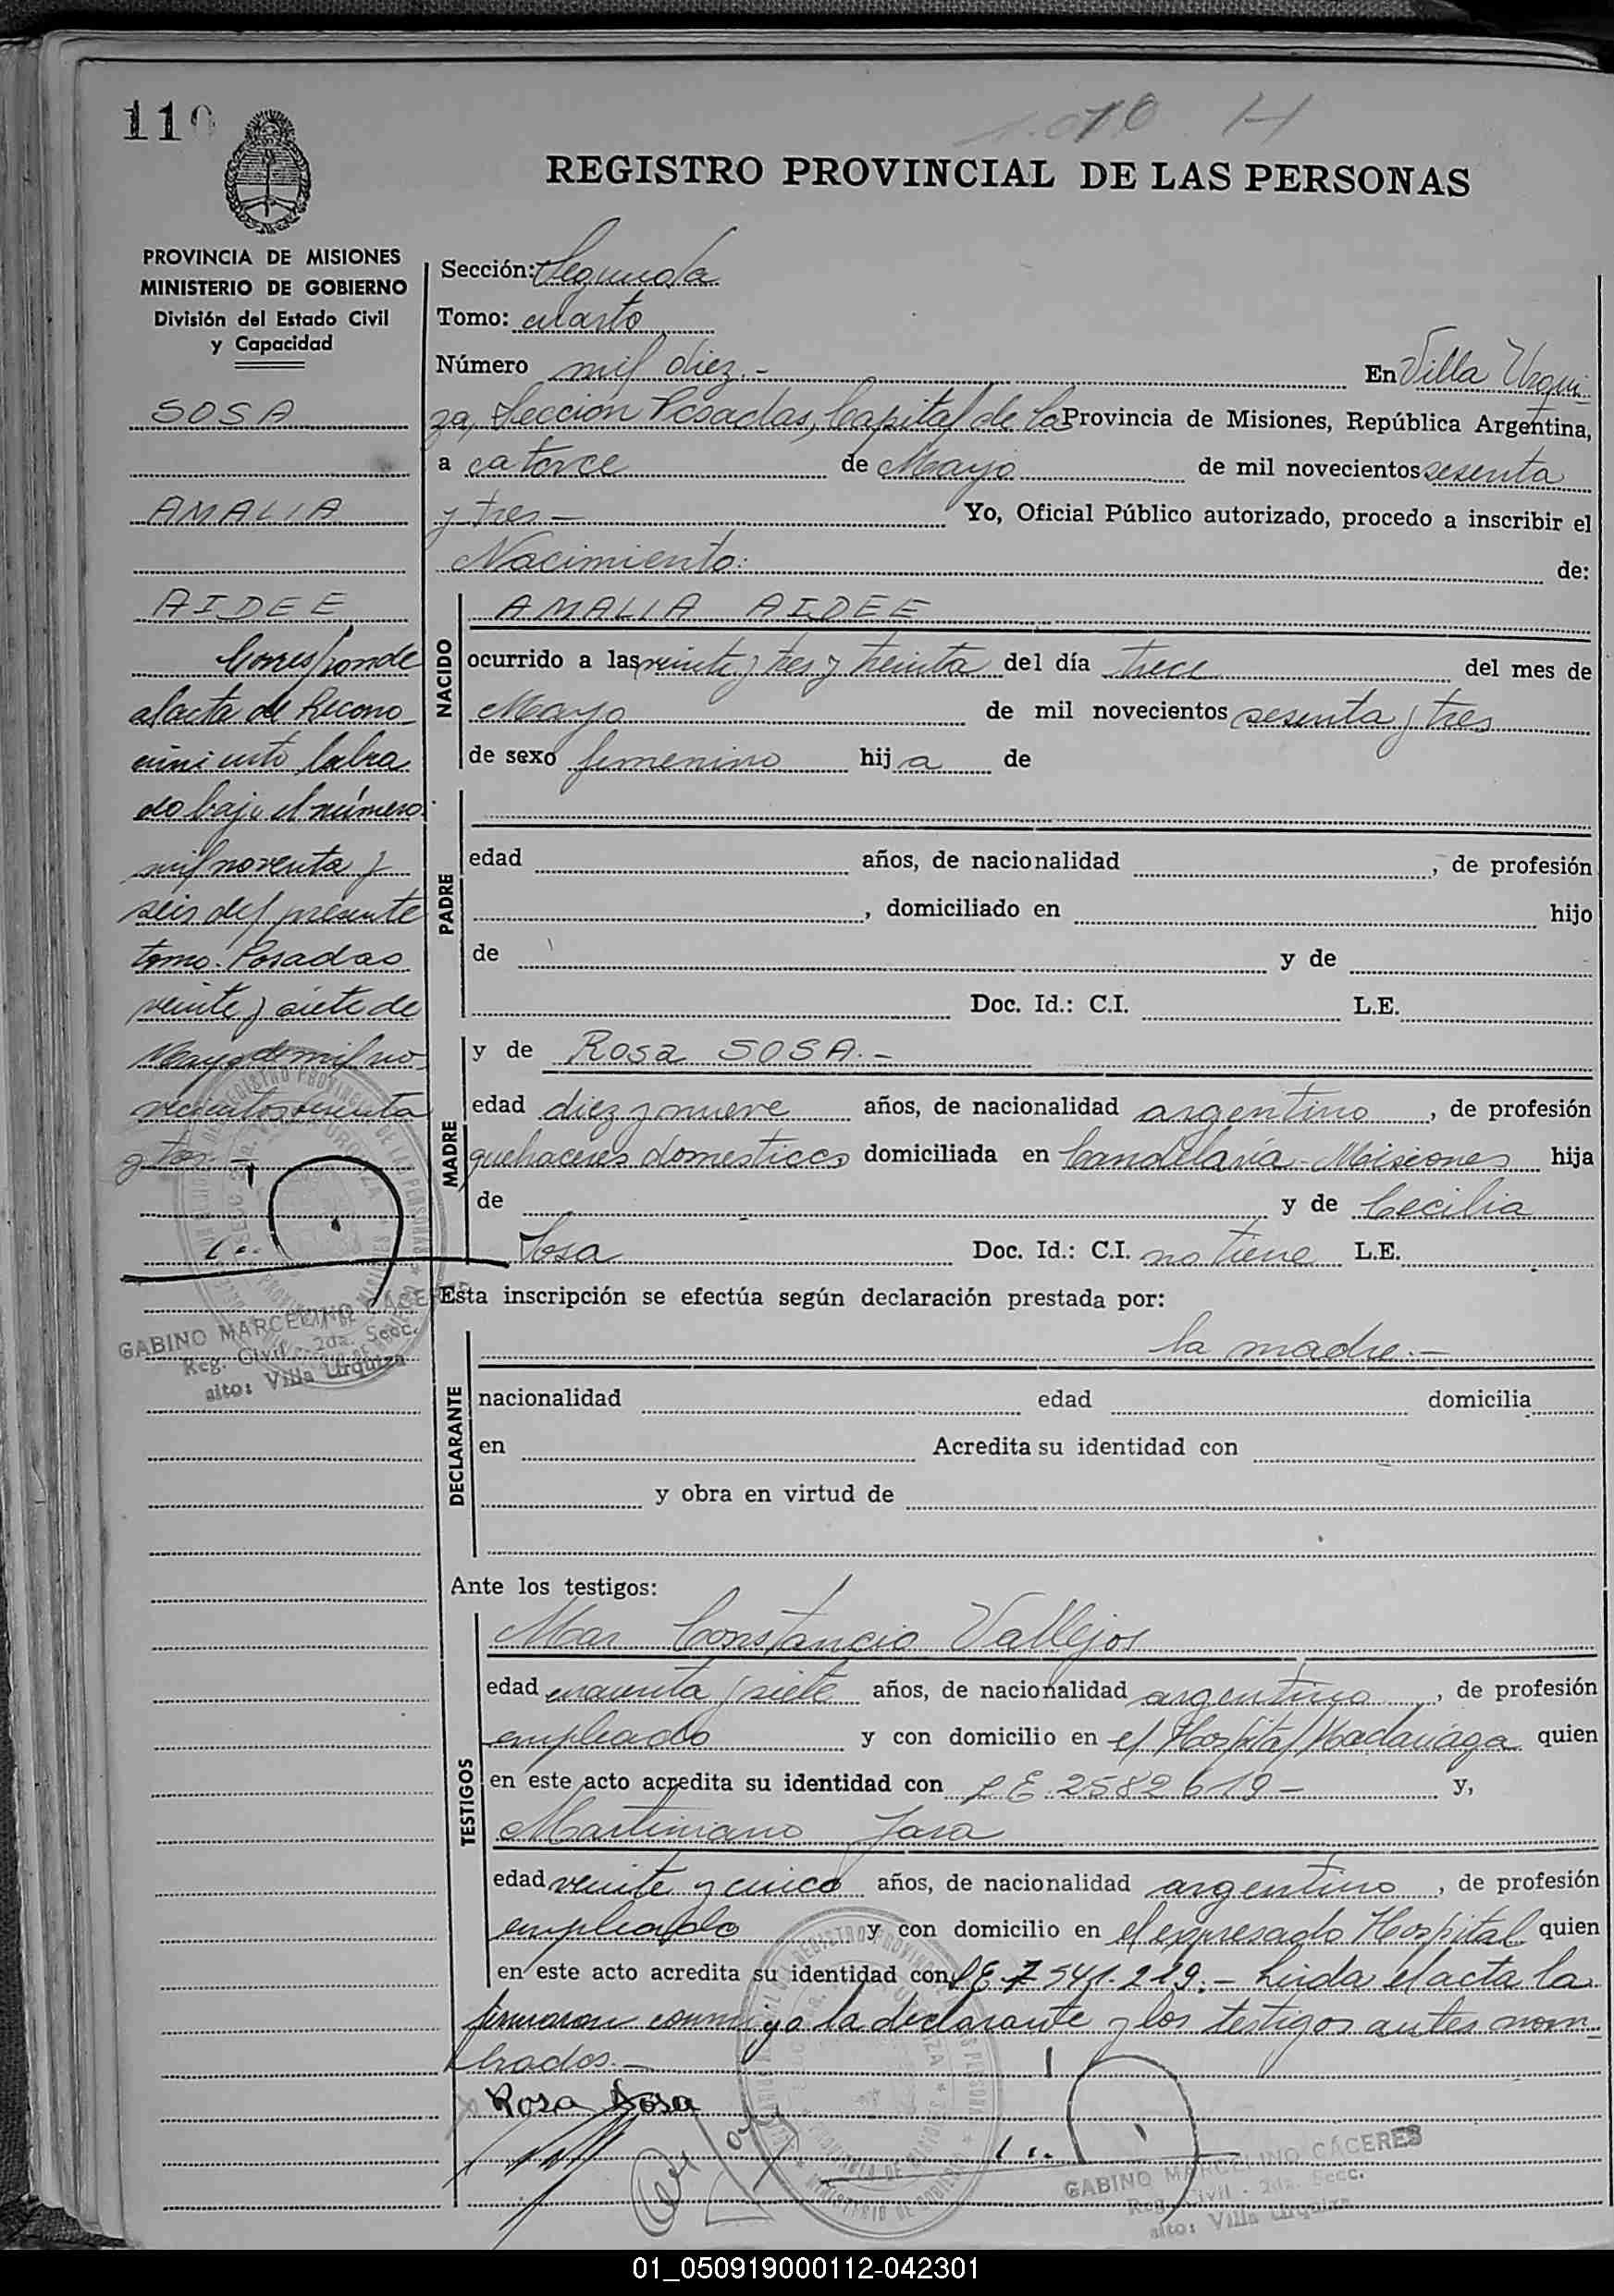 110
1.010 H
REGISTRO PROVINCIAL DE LAS PERSONAS
PROVINCIA DE MISIONES
MINISTERIO DE GOBIERNO
División del Estado Civil
y Capacidad
SOSA
AMALIA
AIDEE
Corresponde
al acta de Recono
cimiento labra
do bajo el número
mil noventa y
seis del presente
tomo. Posadas
veinte y siete de
Mayo de mil no
vecientos sesenta
y tres
GABINO MARCELINO CACERES
Reg. Civil - 2da. Secc.
alto: Villa Urquiza
Sección: Segunda
Tomo: cuarto
Número mil diez.- En Villa Urqui
za, Sección Posadas, Capital de la Provincia de Misiones, República Argentina,
a catorce de Mayo de mil novecientos sesenta
y tres - Yo, Oficial Público autorizado, procedo a inscribir el
Nacimiento: de:
NACIDO
AMALIA AIDEE
ocurrido a las veinte y tres y treinta del día trece del mes de
Mayo de mil novecientos sesenta y tres
de sexo femenino hija de
PADRE
edad años, de nacionalidad , de profesión
, domiciliado en hijo
de y de
Doc. Id.: C.I. L.E.
MADRE
y de Rosa SOSA.-
edad diez y nueve años, de nacionalidad argentino, de profesión
quehaceres domesticos domiciliada en Candelaria - Misiones hija
de y de Cecilia
Sosa Doc. Id.: C.I. no tiene L.E.
Esta inscripción se efectúa según declaración prestada por:
DECLARANTE
la madre.-
nacionalidad edad domicilia
en Acredita su identidad con
y obra en virtud de
Ante los testigos:
TESTIGOS
Mar Constancio Vallejos
edad cuarenta y siete años, de nacionalidad argentino, de profesión
empleado y con domicilio en el Hospital Madariaga quien
en este acto acredita su identidad con L E. 2582619- y,
Martiniano Jara
edad veinte y cinco años, de nacionalidad argentino, de profesión
empleado y con domicilio en el expresado Hospital quien
en este acto acredita su identidad con L E. 7541.219.- Leida el acta la
firmaron conmigo la declarante y los testigos antes nom
brados.-
Rosa Sosa
GABINO MARCELINO CÁCERES
Reg. Civil - 2da. Secc.
alto: Villa Urquiza
01_050919000112-042301